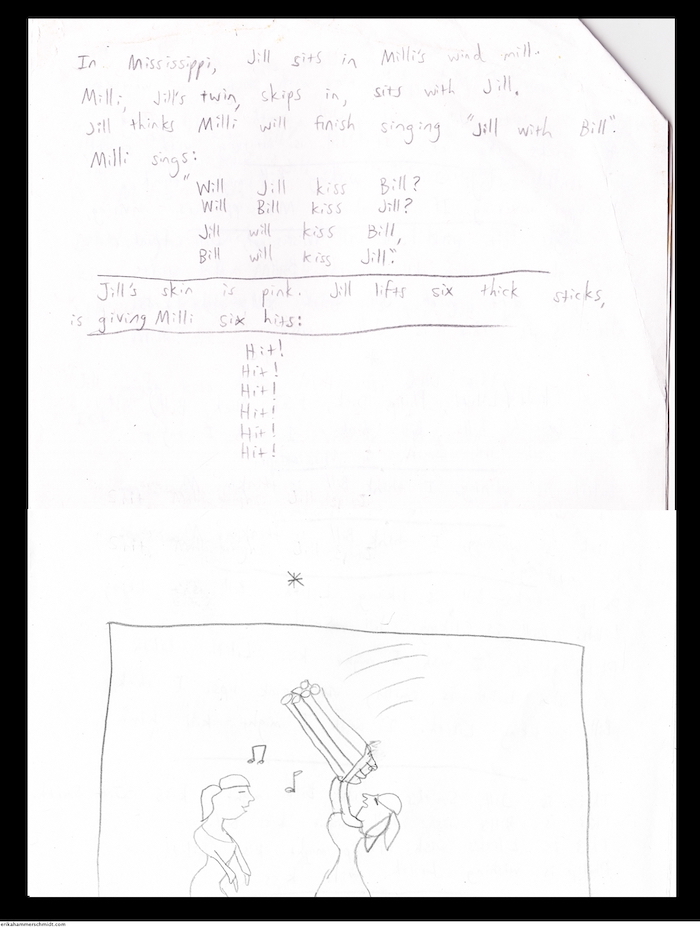 In Mississippi, Jill sits in Milli's wind mill.
Milli, Jill's twin, skips in, sits with Jill.
Jill thinks Milli will finish singing "Jill with Bill".
Milli sings:
"Will Jill kiss Bill?
Will Bill kiss Jill?
Jill will kiss Bill,
Bill will kiss Jill".
Jill's skin is pink. Jill lifts six thick sticks,
is giving Milli six hits:
Hit!
Hit!
Hit!
Hit!
Hit!
Hit!
*
erikahammerschmidt.com